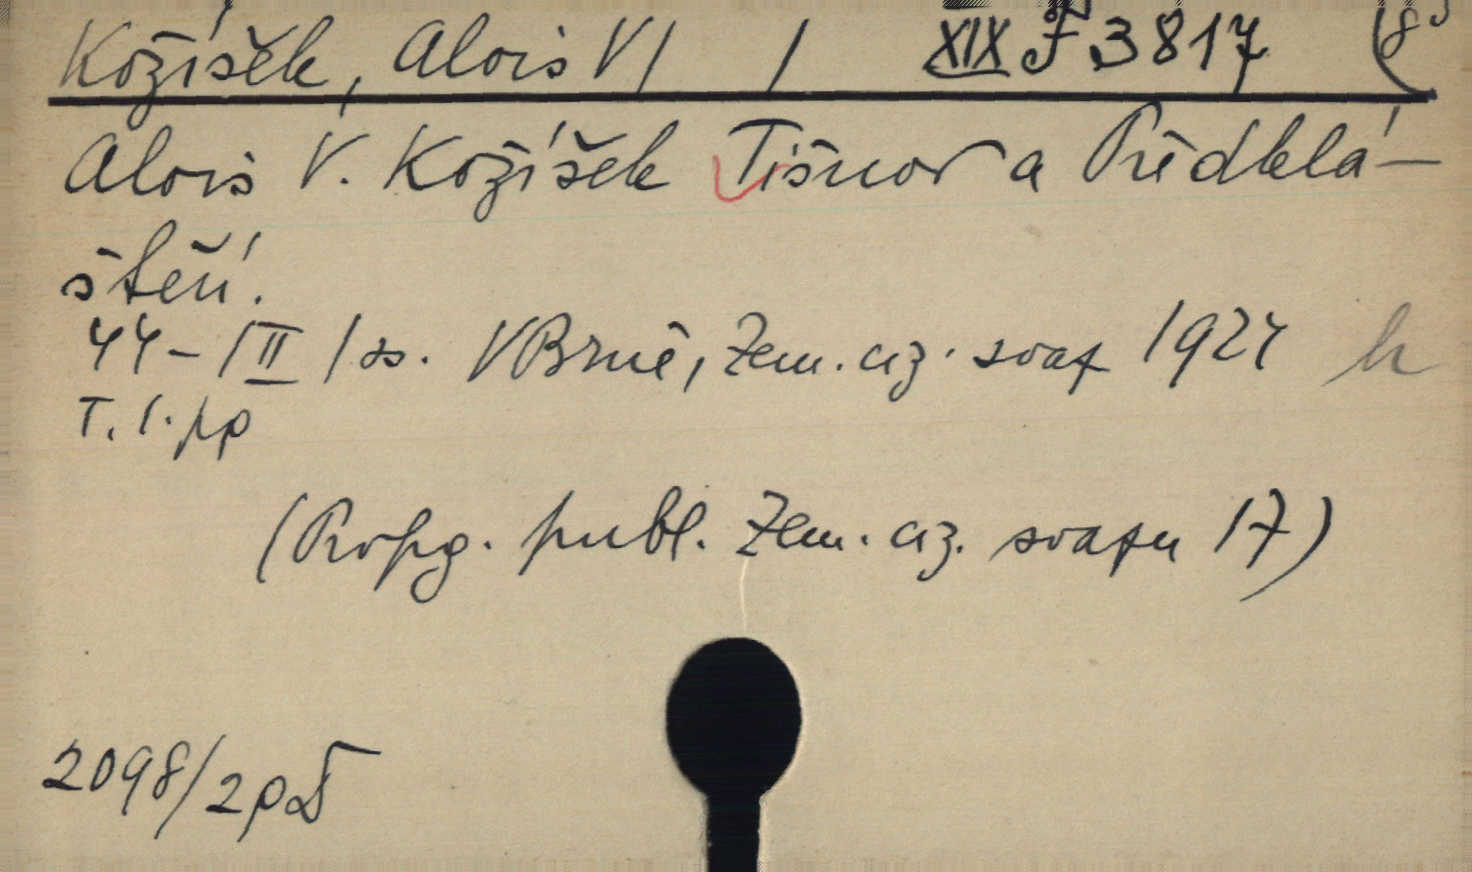 Kožíšek, Alois V/ / XIX F 3817
Alois V. Kožíšek Tišnov a Předklá-
štěří.
44-/II/s. V Brně, Zem. ciz. svaz 1924 h
T. l. pp
(Propg. publ. Zem. ciz. svazu 17)
2098/2